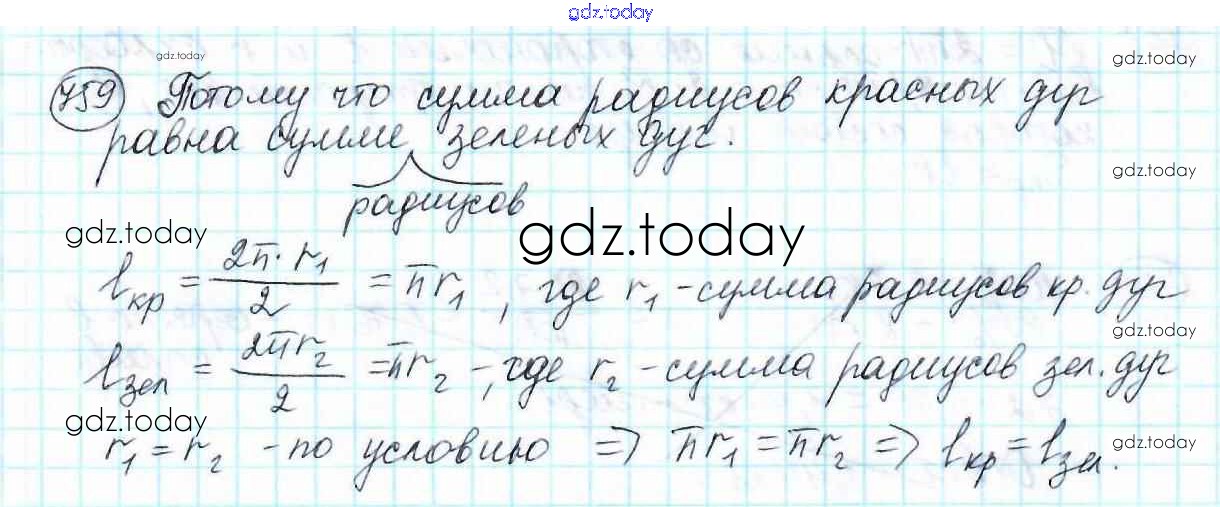 gdz.today
gdz.today
gdz.today
759 Потому что сумма радиусов красных дуг
равна сумме зеленых дуг.
gdz.today
радиусов
gdz.today
gdz.today
lкр = 2π·r₁/2 = πr₁, где r₁ - сумма радиусов кр. дуг
gdz.today
lзел = 2πr₂/2 = πr₂ -, где r₂ - сумма радиусов зел. дуг
gdz.today
r₁ = r₂ - по условию => πr₁ = πr₂ => lкр = lзел.
gdz.today